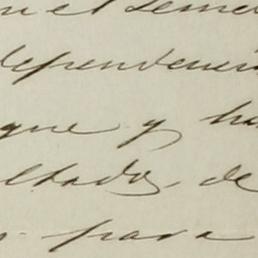 en el seme
dependenci
que y ha
ultados de
para